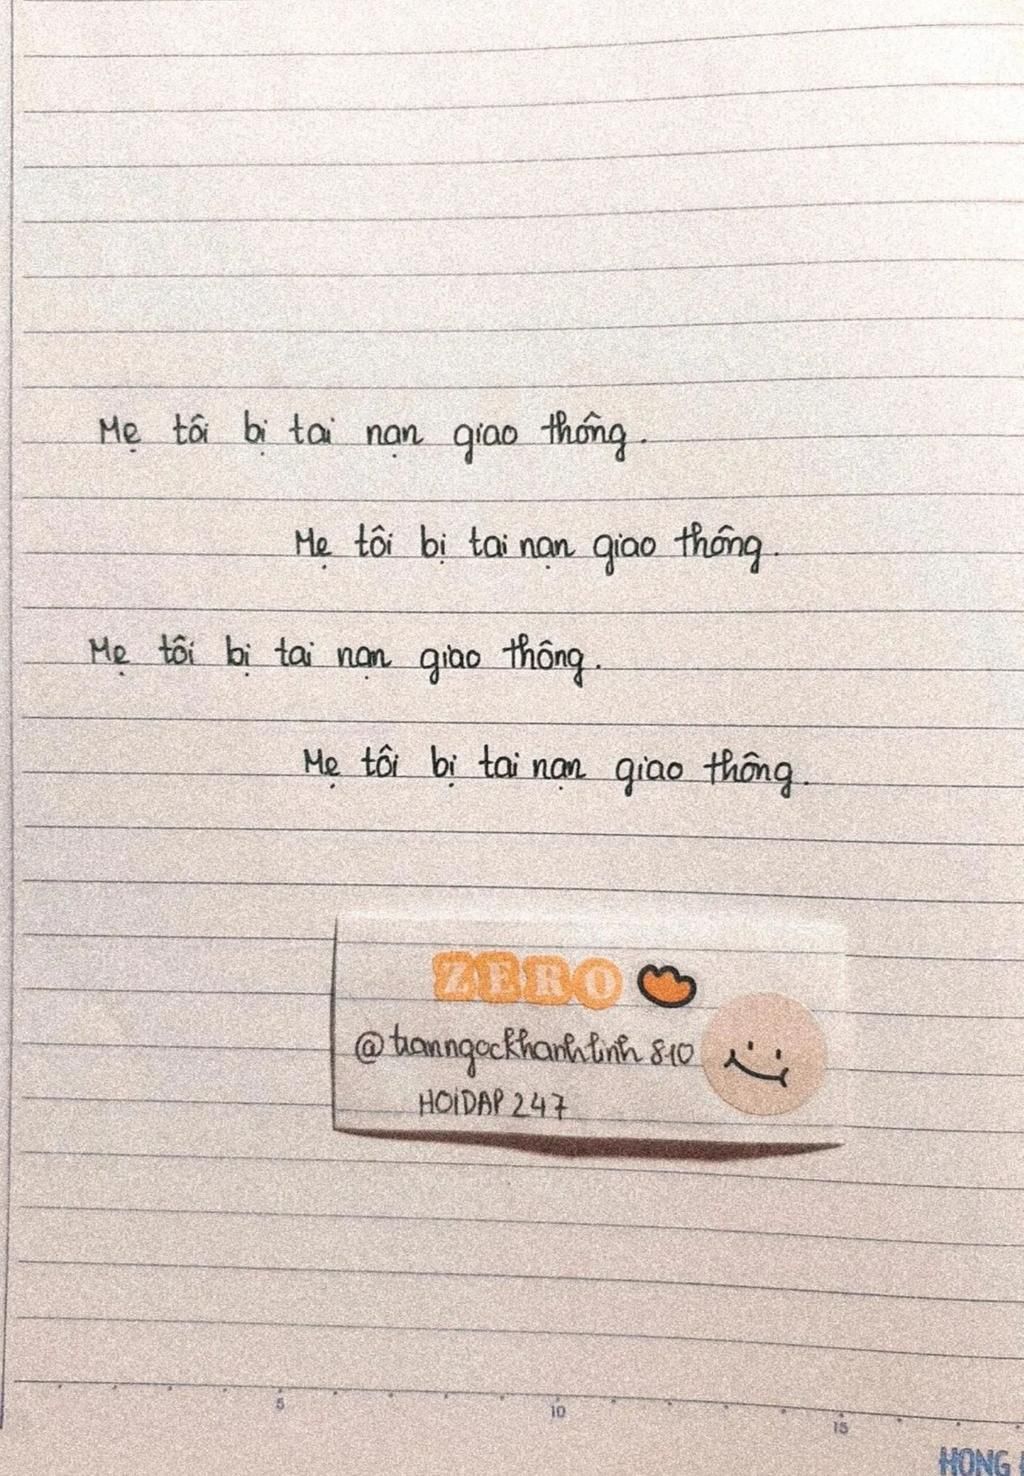 Mẹ tôi bị tai nạn giao thông.
Mẹ tôi bị tai nạn giao thông.
Mẹ tôi bị tai nạn giao thông.
Mẹ tôi bị tai nạn giao thông.
ZERO
@tranngockhanhlinh810
HOIDAP 247
5 10 15
HONG